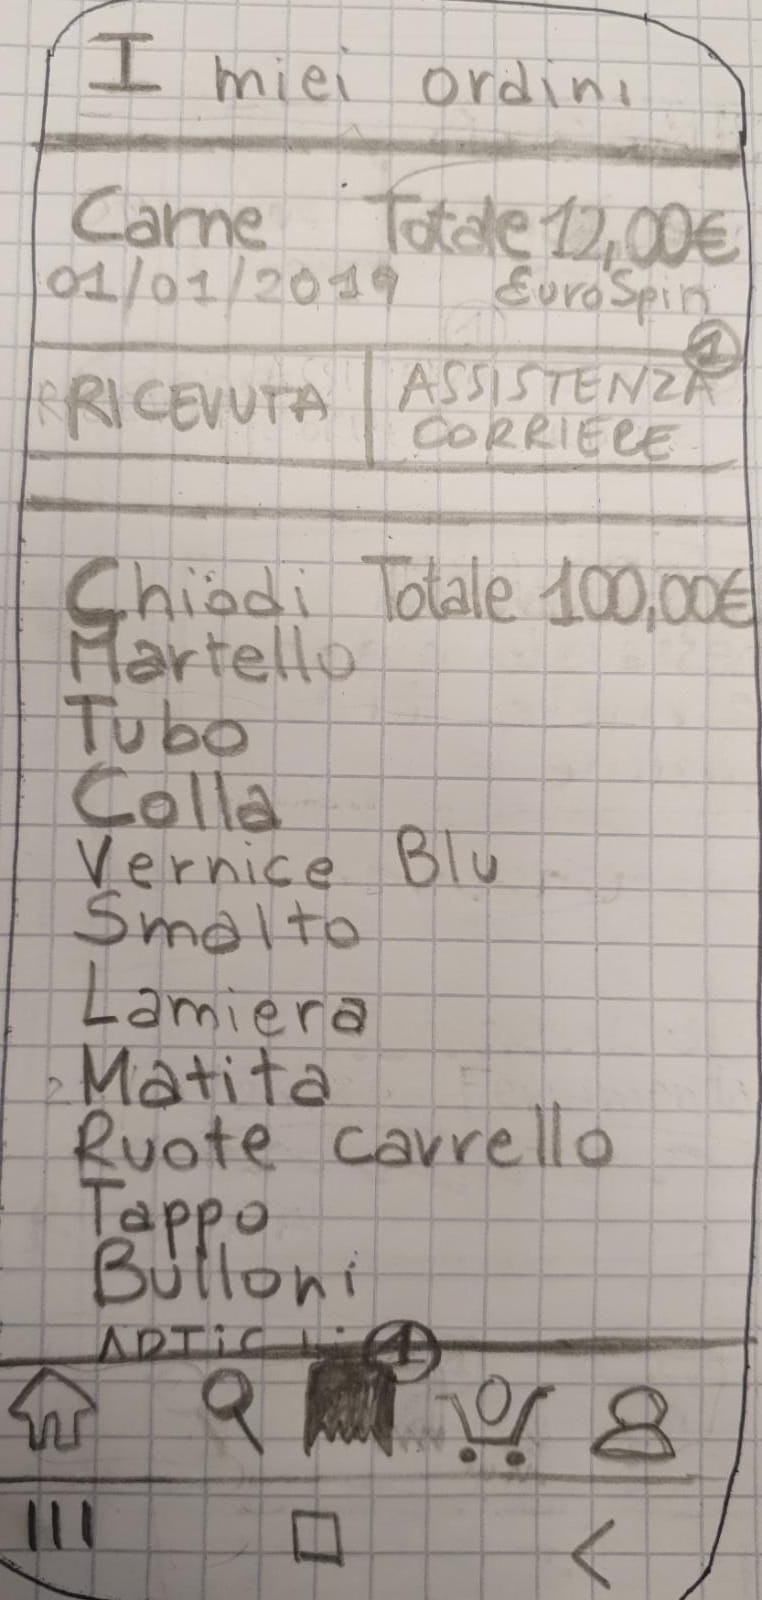 I miei ordini
Carne Totale 12,00€
01/01/2019 EuroSpin
1
RICEVUTA ASSISTENZA
CORRIERE
Chiodi Totale 100,00€
Martello
Tubo
Colla
Vernice Blu
Smalto
Lamiera
Matita
Ruote carrello
Tappo
Bulloni
1
0